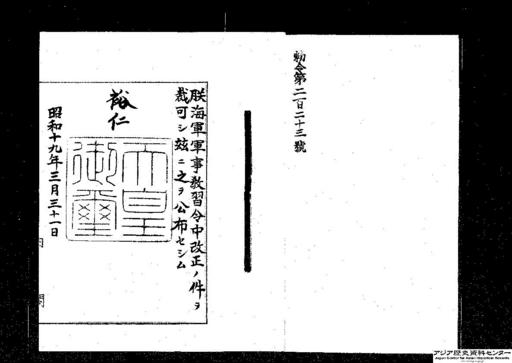 勅令第二百二十三號
朕海軍軍事教習令中改正ノ件ヲ
裁可シ玆ニ之ヲ公布セシム
裕仁
天皇御璽
昭和十九年三月三十一日
内閣
アジア歴史資料センター
Japan Center for Asian Historical Records